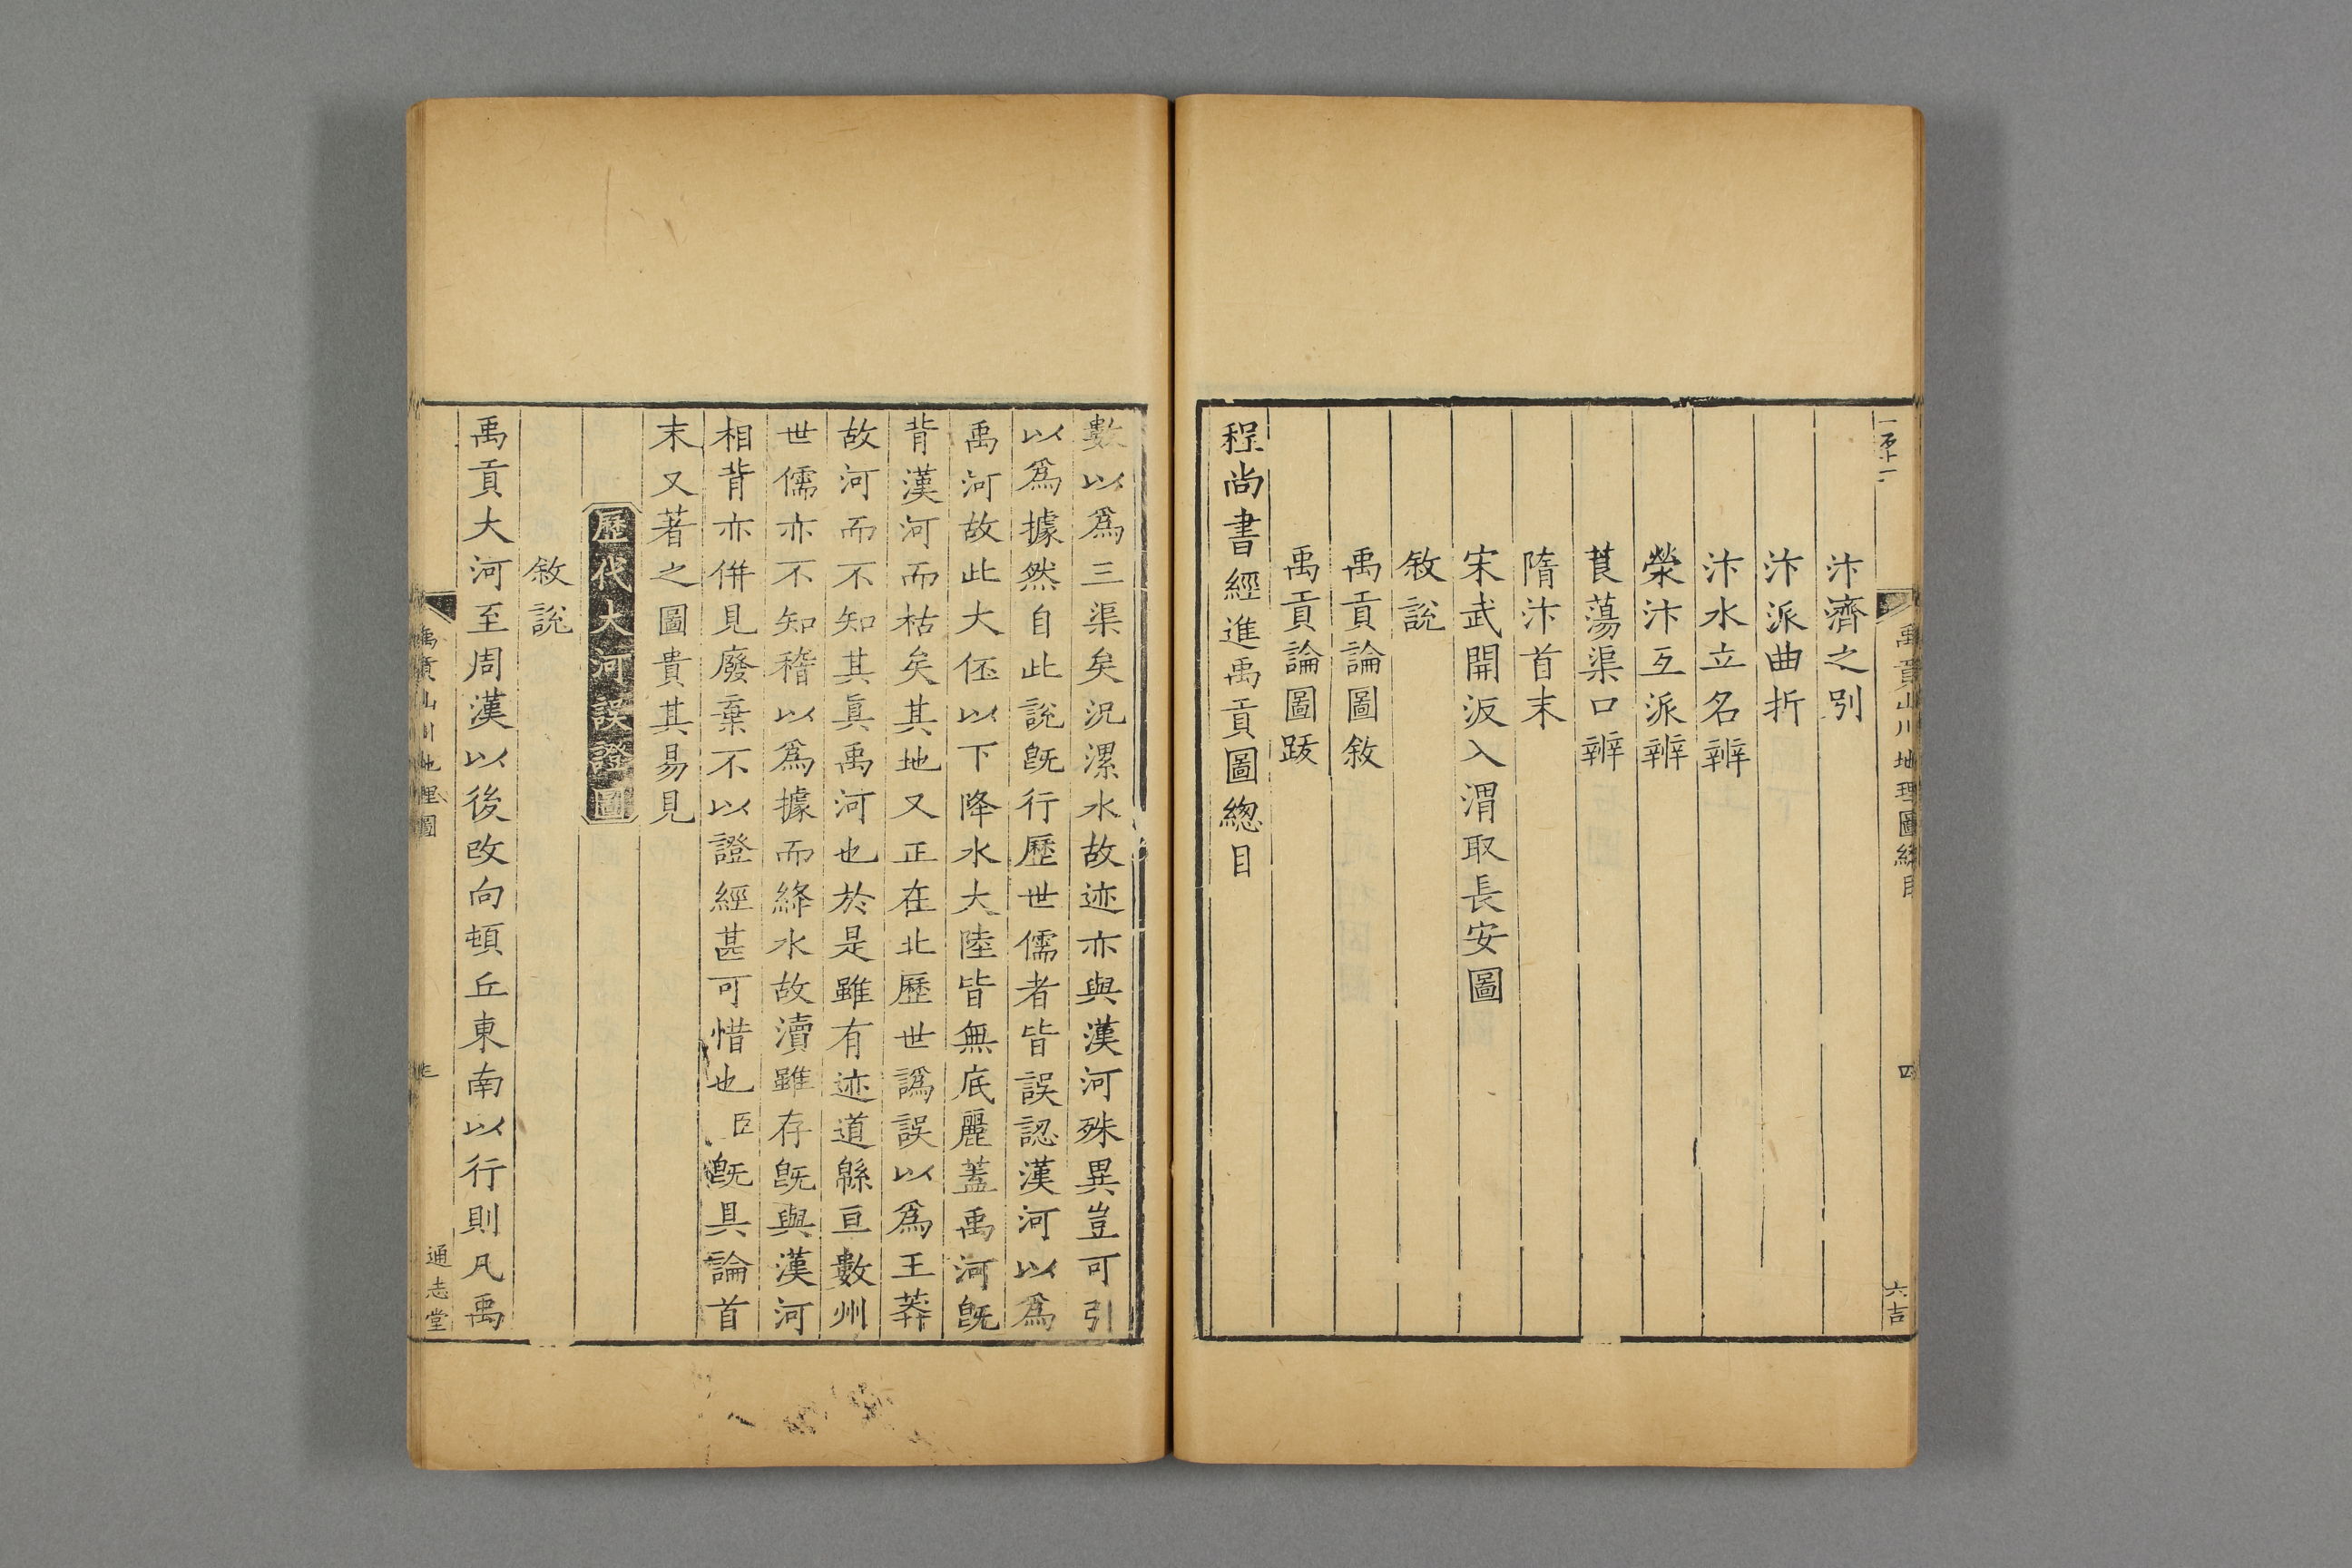 汴濟之別
汴派曲折
汴水立名辨
滎汴互派辨
莨蕩渠口辨
隋汴首末
宋武開汳入渭取長安圖
敘說
禹貢論圖敘
禹貢論圖跋
程尚書經進禹貢圖總目
禹貢山川地理圖總目
四
六吉
數以爲三渠矣況漯水故迹亦與漢河殊異豈可引
以爲據然自此說旣行歷世儒者皆誤認漢河以爲
禹河故此大伾以下降水大陸皆無底麗蓋禹河旣
背漢河而枯矣其地又正在北歷世譌誤以爲王莽
故河而不知其眞禹河也於是雖有迹道緜亘數州
世儒亦不知稽以爲據而絳水故瀆雖存旣與漢河
相背亦併見廢棄不以證經甚可惜也臣旣具論首
末又著之圖貴其易見
歷代大河誤證圖
敘說
禹貢大河至周漢以後改向頓丘東南以行則凡禹
禹貢山川地理圖
通志堂